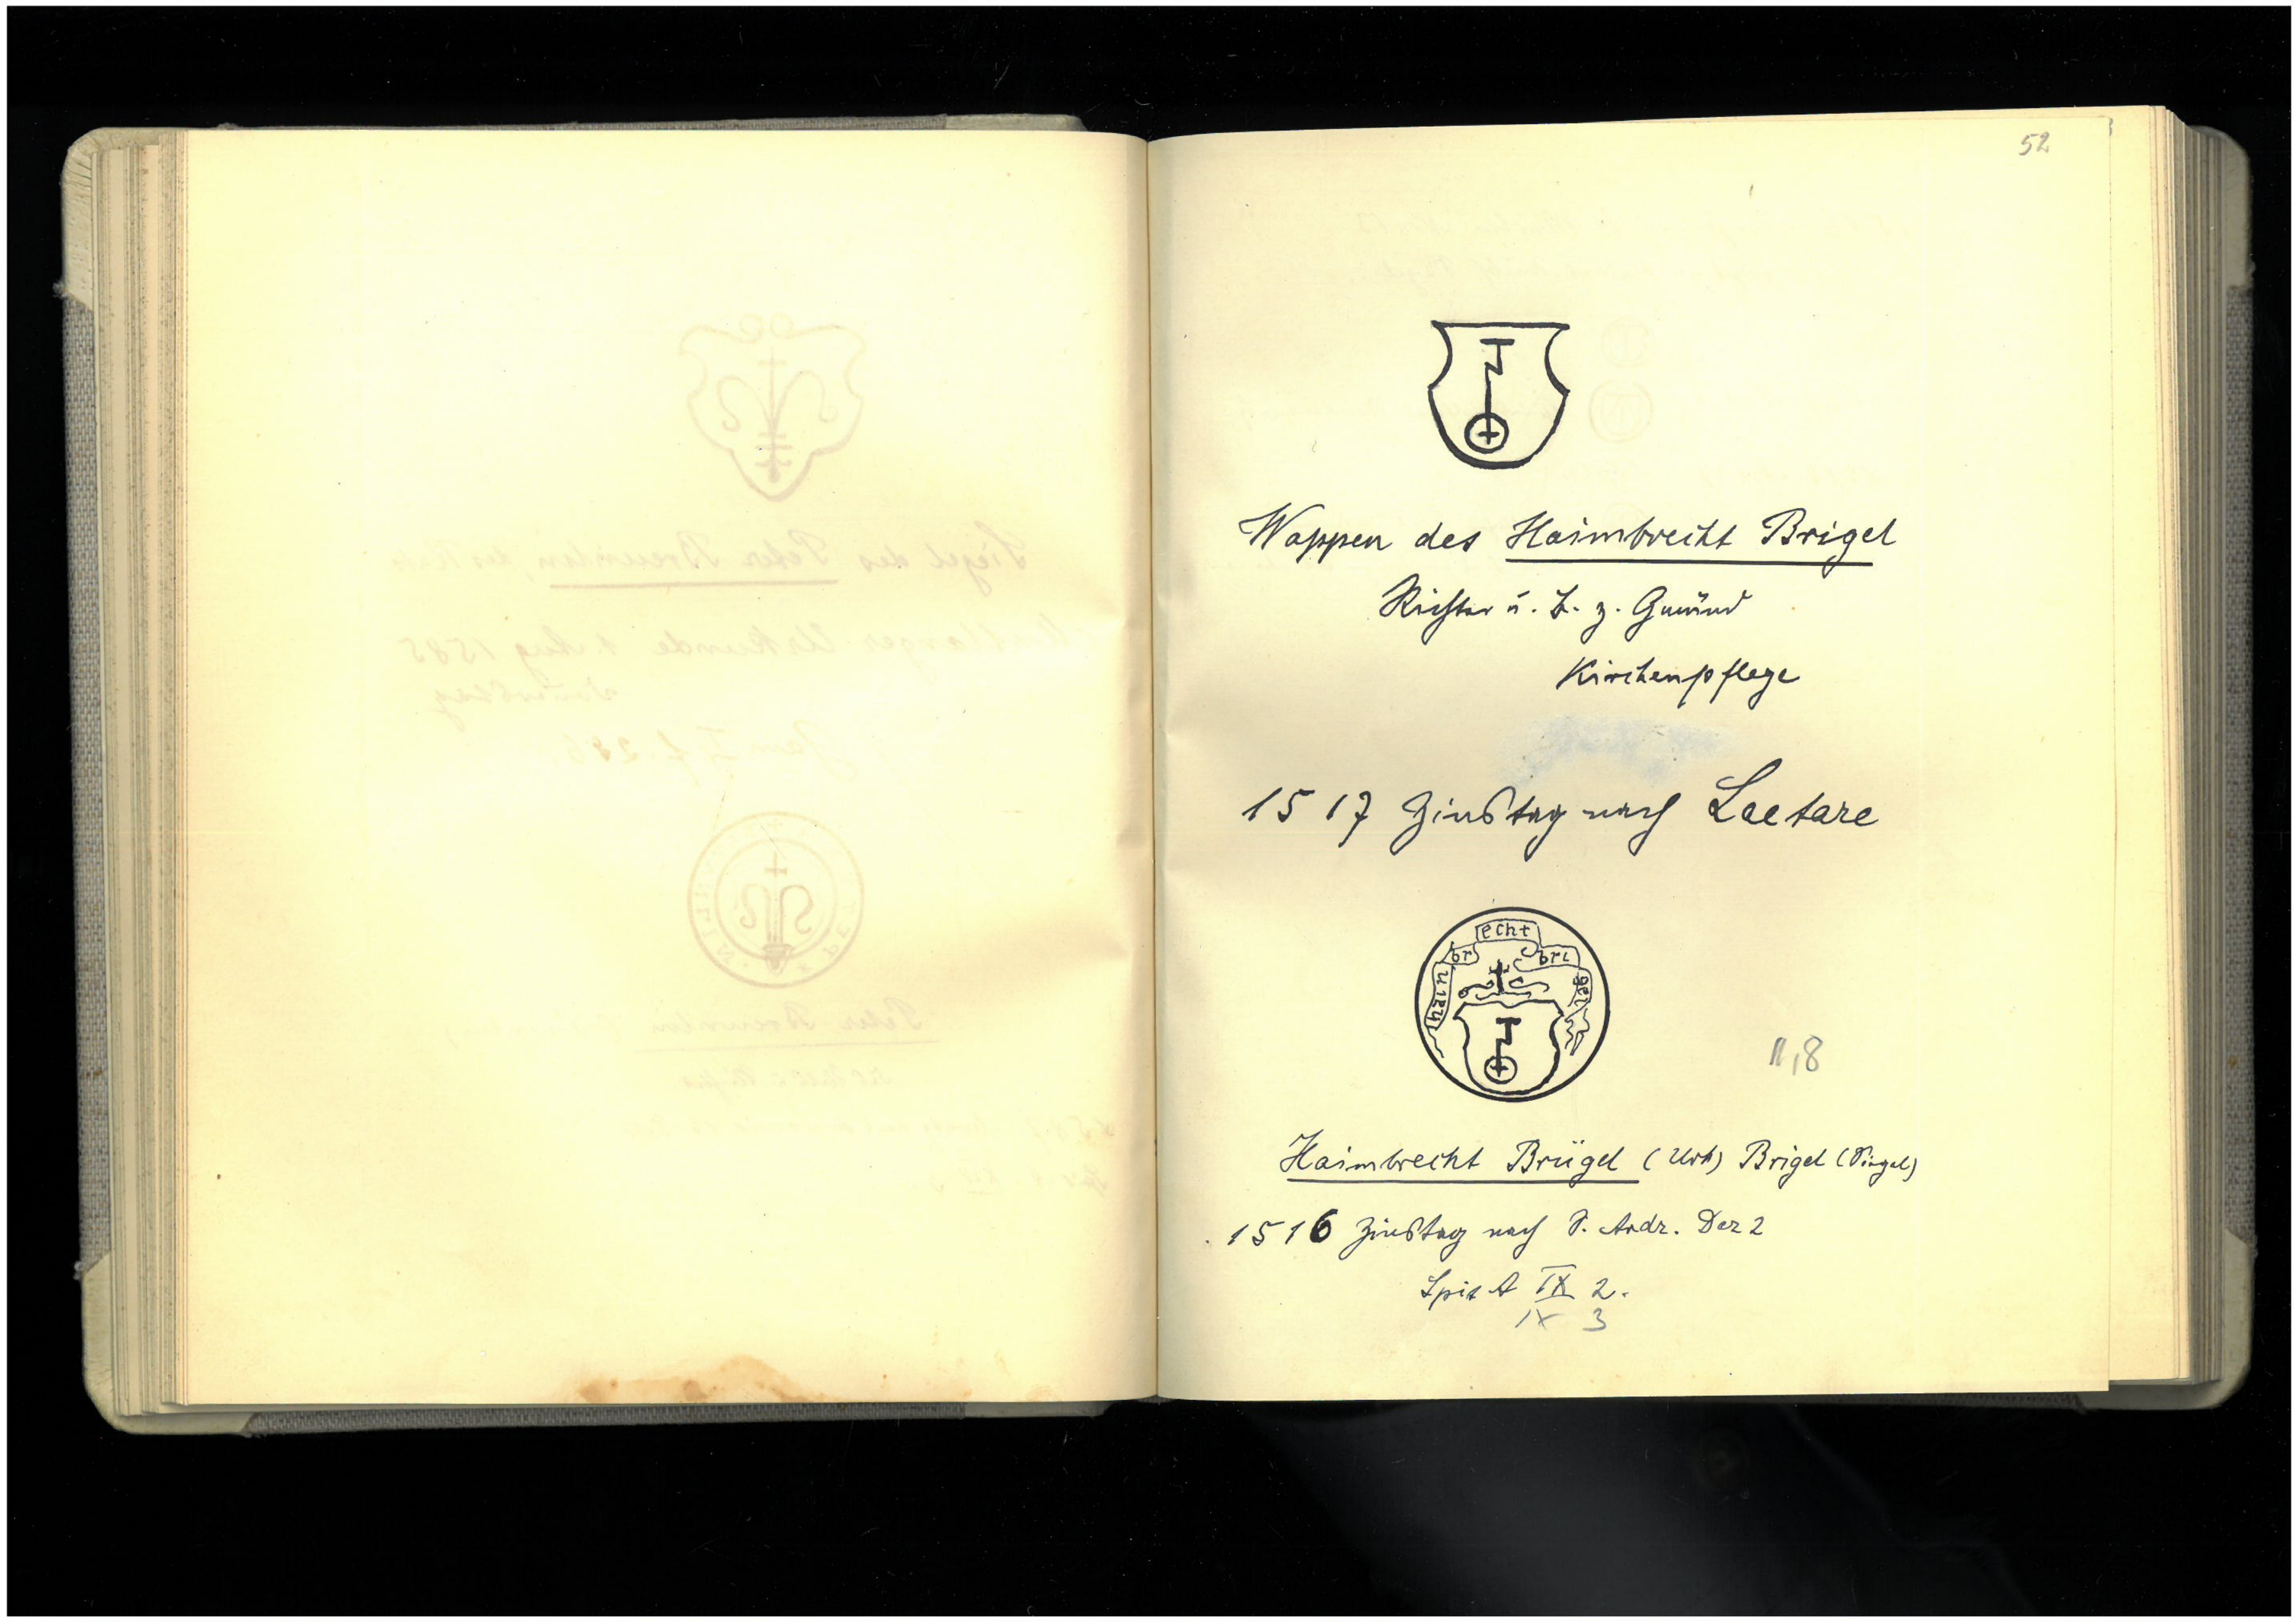 52
Wappen des Haimbrecht Brigel
Richter u. B. z. Gmünd
Kirchenpflege
1517 Zinstag nach Laetare
hain br echt bri gel
11,8
Haimbrecht Brügel (Urk) Brigel (Siegel)
1516 Zinstag nach S. Andr. Dez 2
Spit A IX 2.
IX 3